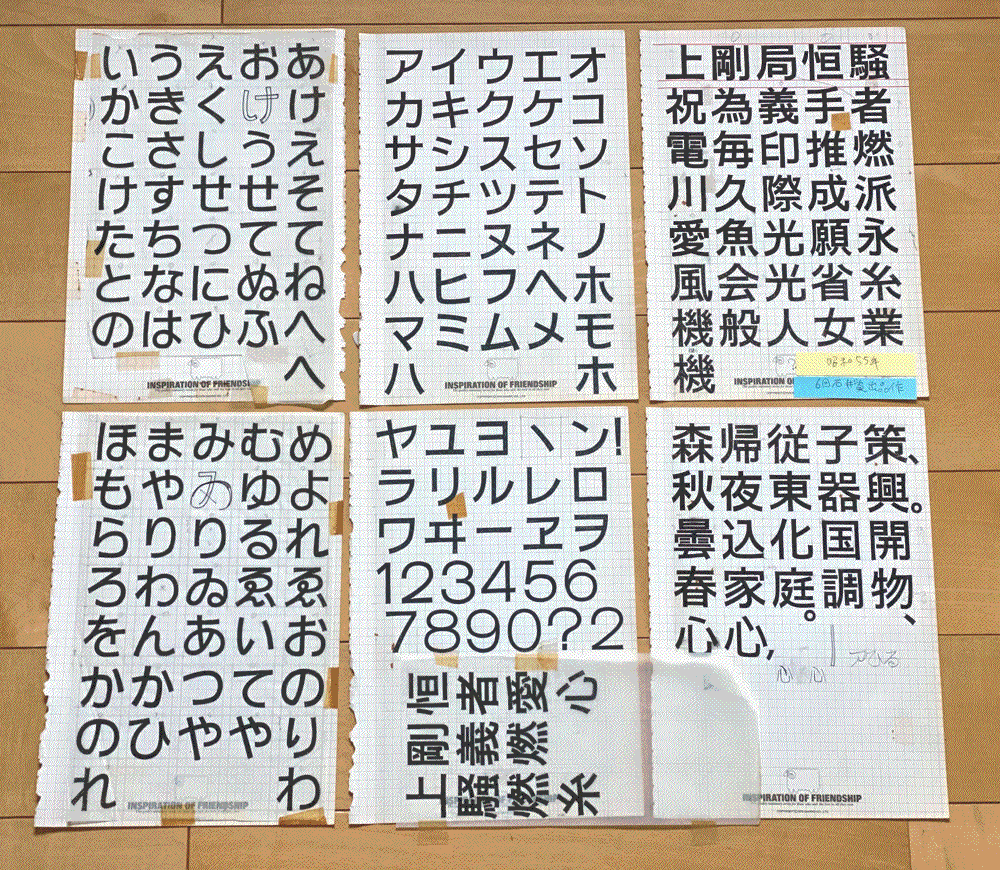 いうえおあ
かきくけけ
こさしうえ
けすせせそ
たちつてて
となにぬね
のはひふへ
へ
INSPIRATION OF FRIENDSHIP
アイウエオ
カキクケコ
サシスセソ
タチツテト
ナニヌネノ
ハヒフヘホ
マミムメモ
ハホ
INSPIRATION OF FRIENDSHIP
上剛局恒騒
祝為義手者
電毎印推燃
川久際成派
愛魚光願永
風会光省糸
機般人女業
機
昭和55年
INSPIRATION OF FRIENDSHIP
ほまみむめ
もやみゆよ
らりりるれ
ろわゐゑゑ
をんあいお
かかつての
のひややり
れわ
INSPIRATION OF FRIENDSHIP
ヤユヨヽン!
ラリルレロ
ワヰーヱヲ
123456
7890?2
恒者愛心
剛義燃
上騒燃糸
森帰従子策、
秋夜東器興。
曇込化国開
春家庭。調物、
心心,
心心
INSPIRATION OF FRIENDSHIP